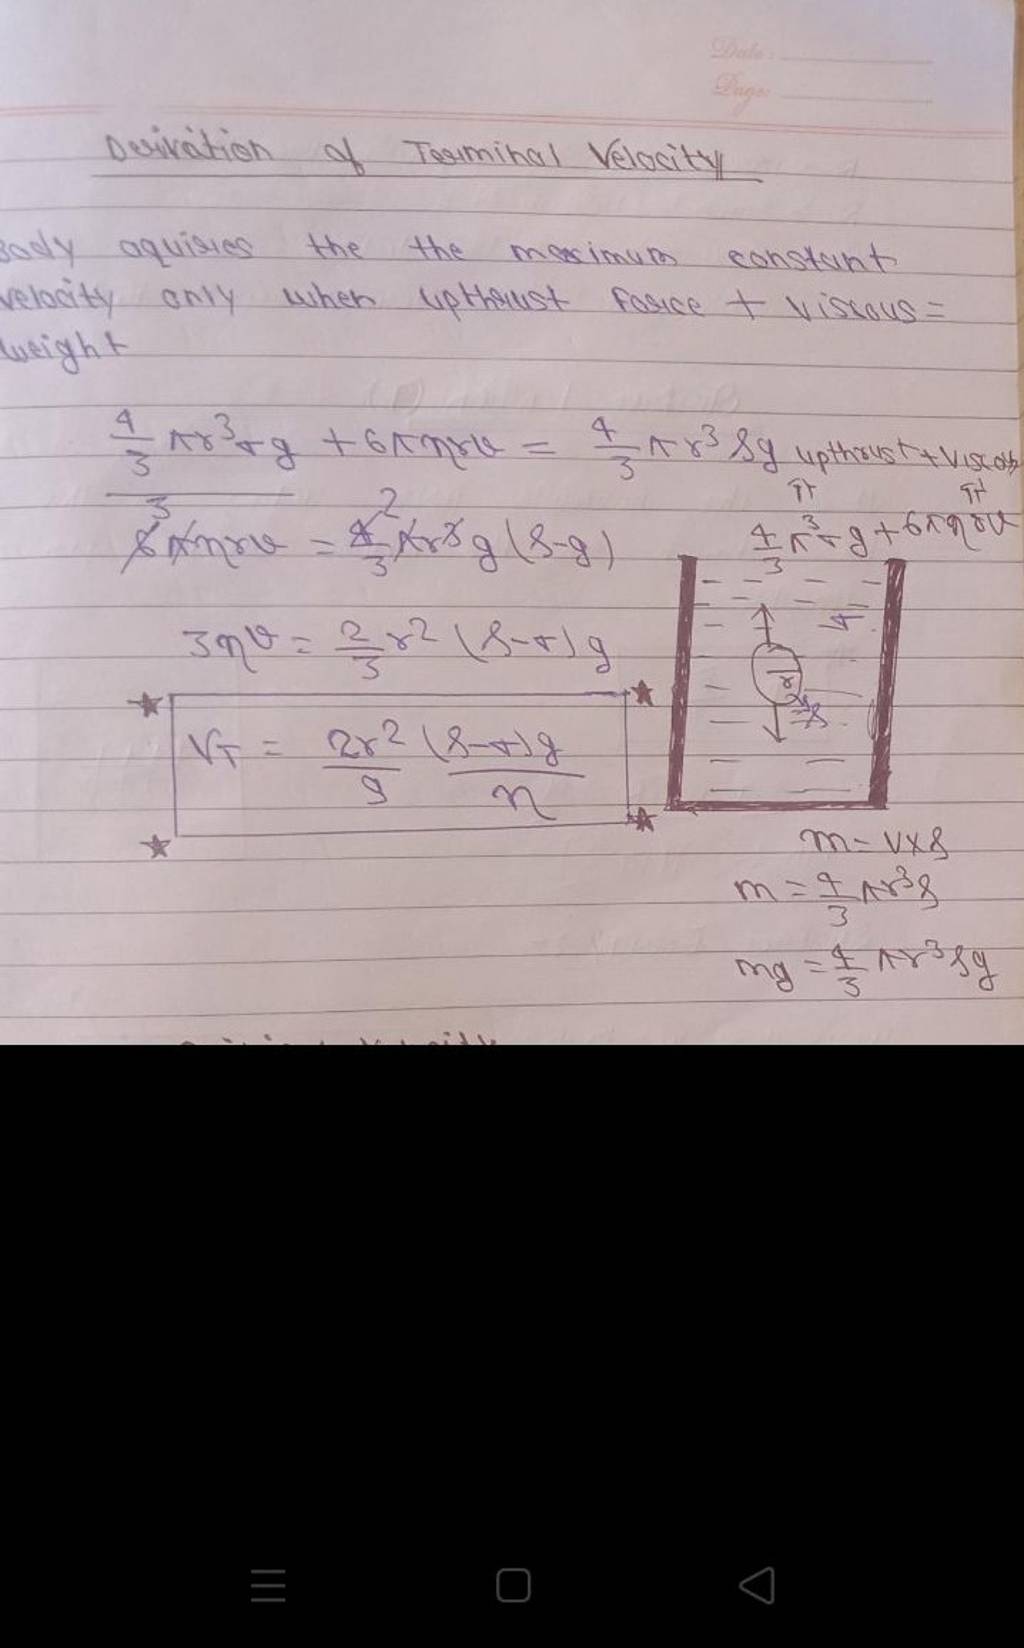 Date:
Page:
Derivation of Terminal Velocity
Body aquires the the maximum constant
velocity only when upthrust force + viscous =
weight
4/3 πr³σg + 6πηrv = 4/3 πr³ρg upthrust + viscous
6πηrv = 4/3 πr³g (ρ-g)
3 2
4/3 π³σg + 6πηrv
3ηv = 2/3 r² (ρ-σ)g
σ
r
ρ
V_T = 2r²/9 (ρ-σ)g/η
m = V×ρ
m = 4/3 πr³ρ
mg = 4/3 πr³ρg